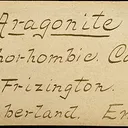 Aragonite
horhombic Ca
Frizington.
berland. En